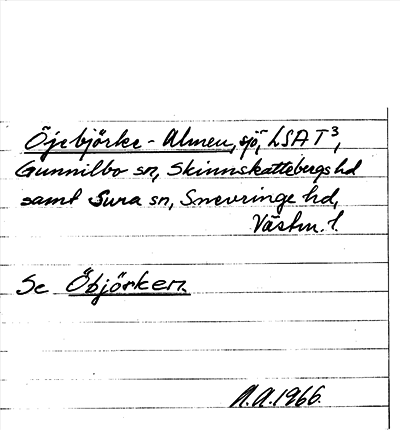 Öjebjörke-Almen, sjö, LSA T³,
Gunnilbo sn, Skinnskattebergs hd
samt Sura sn, Snevringe hd,
Västm. l.
Se Öbjörken
A.A. 1966.